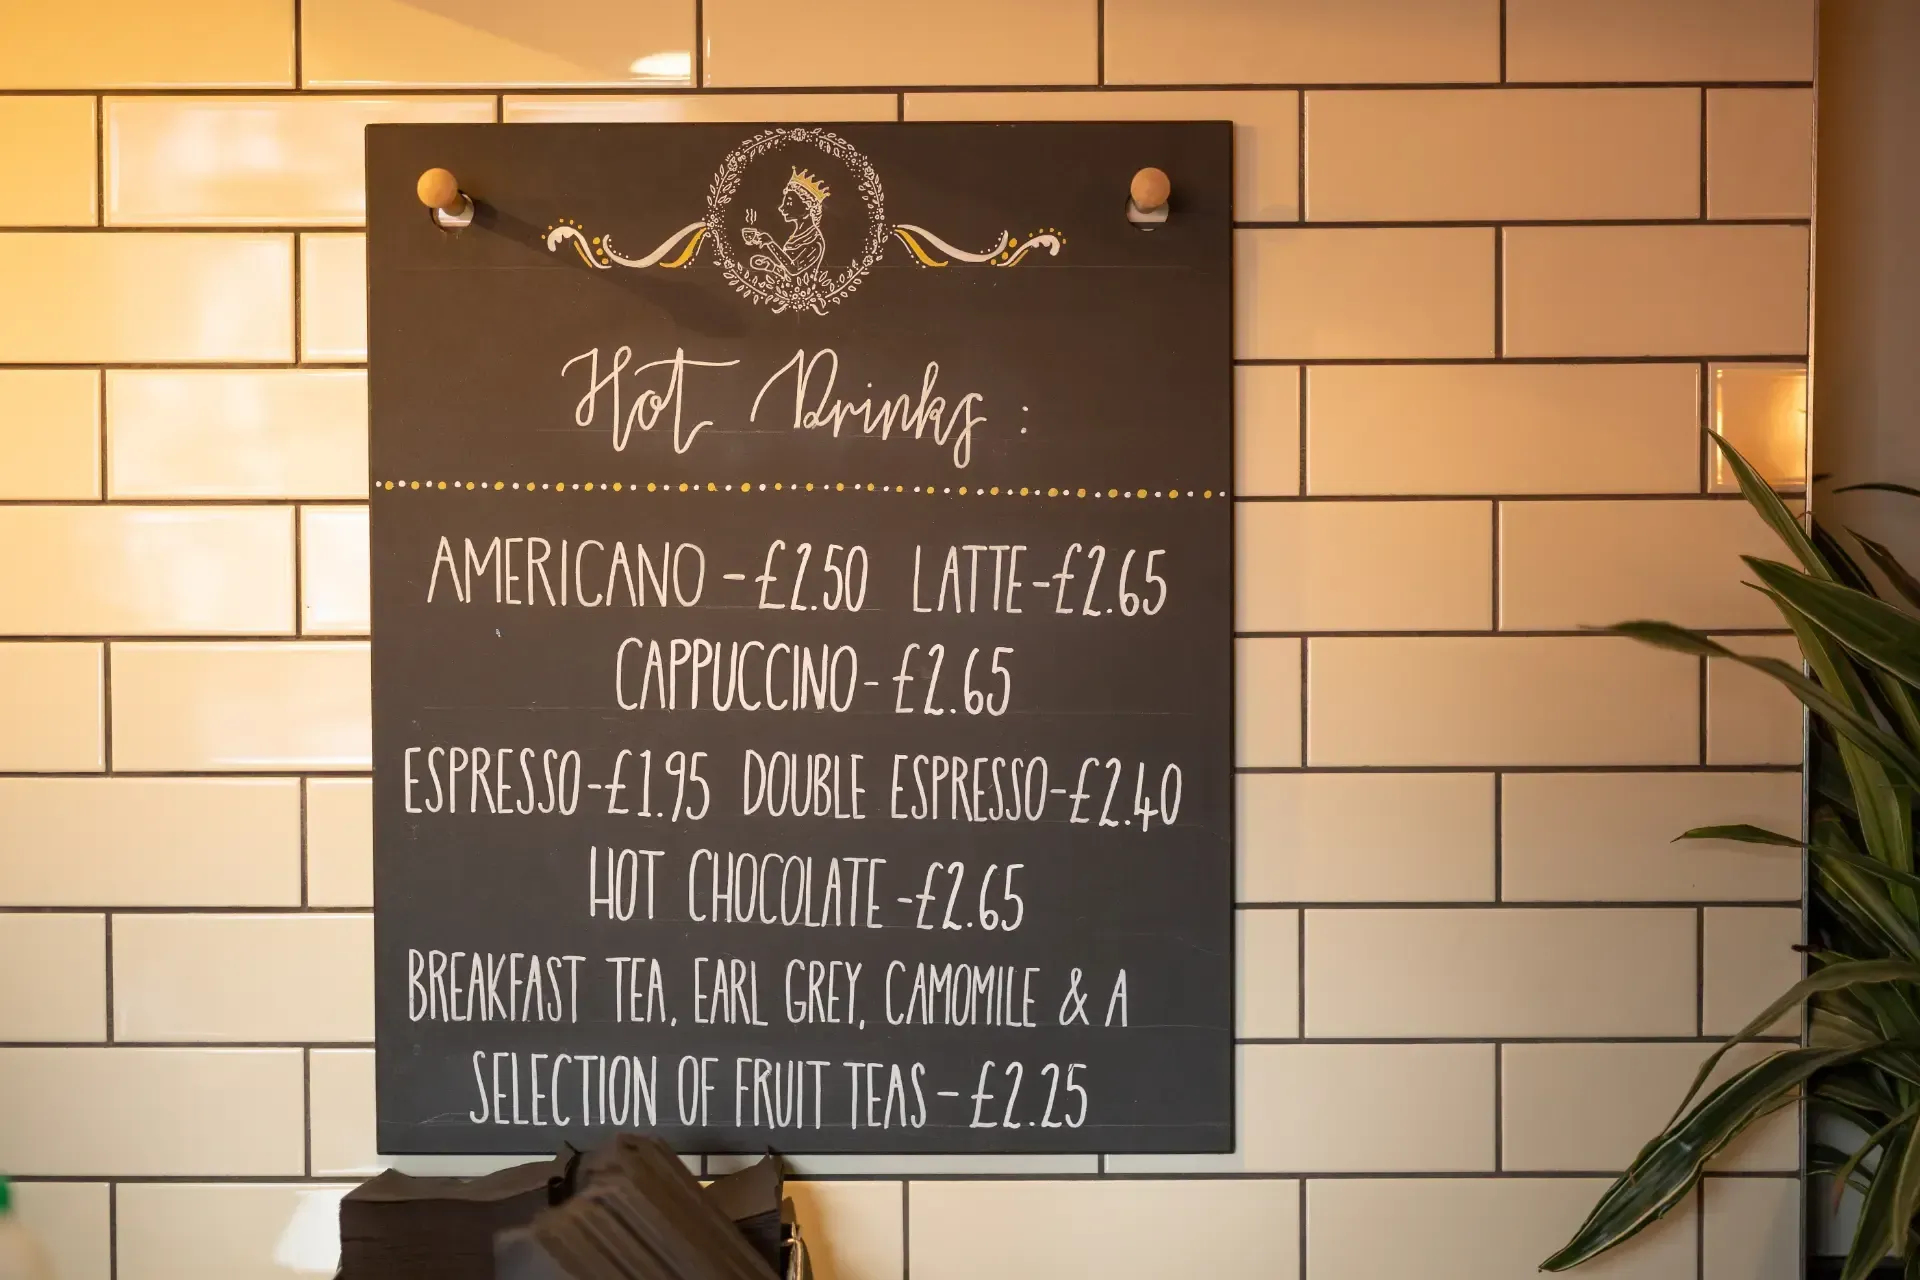 Hot Drinks :
AMERICANO - £2.50 LATTE - £2.65
CAPPUCCINO - £2.65
ESPRESSO - £1.95 DOUBLE ESPRESSO - £2.40
HOT CHOCOLATE - £2.65
BREAKFAST TEA, EARL GREY, CAMOMILE & A
SELECTION OF FRUIT TEAS - £2.25